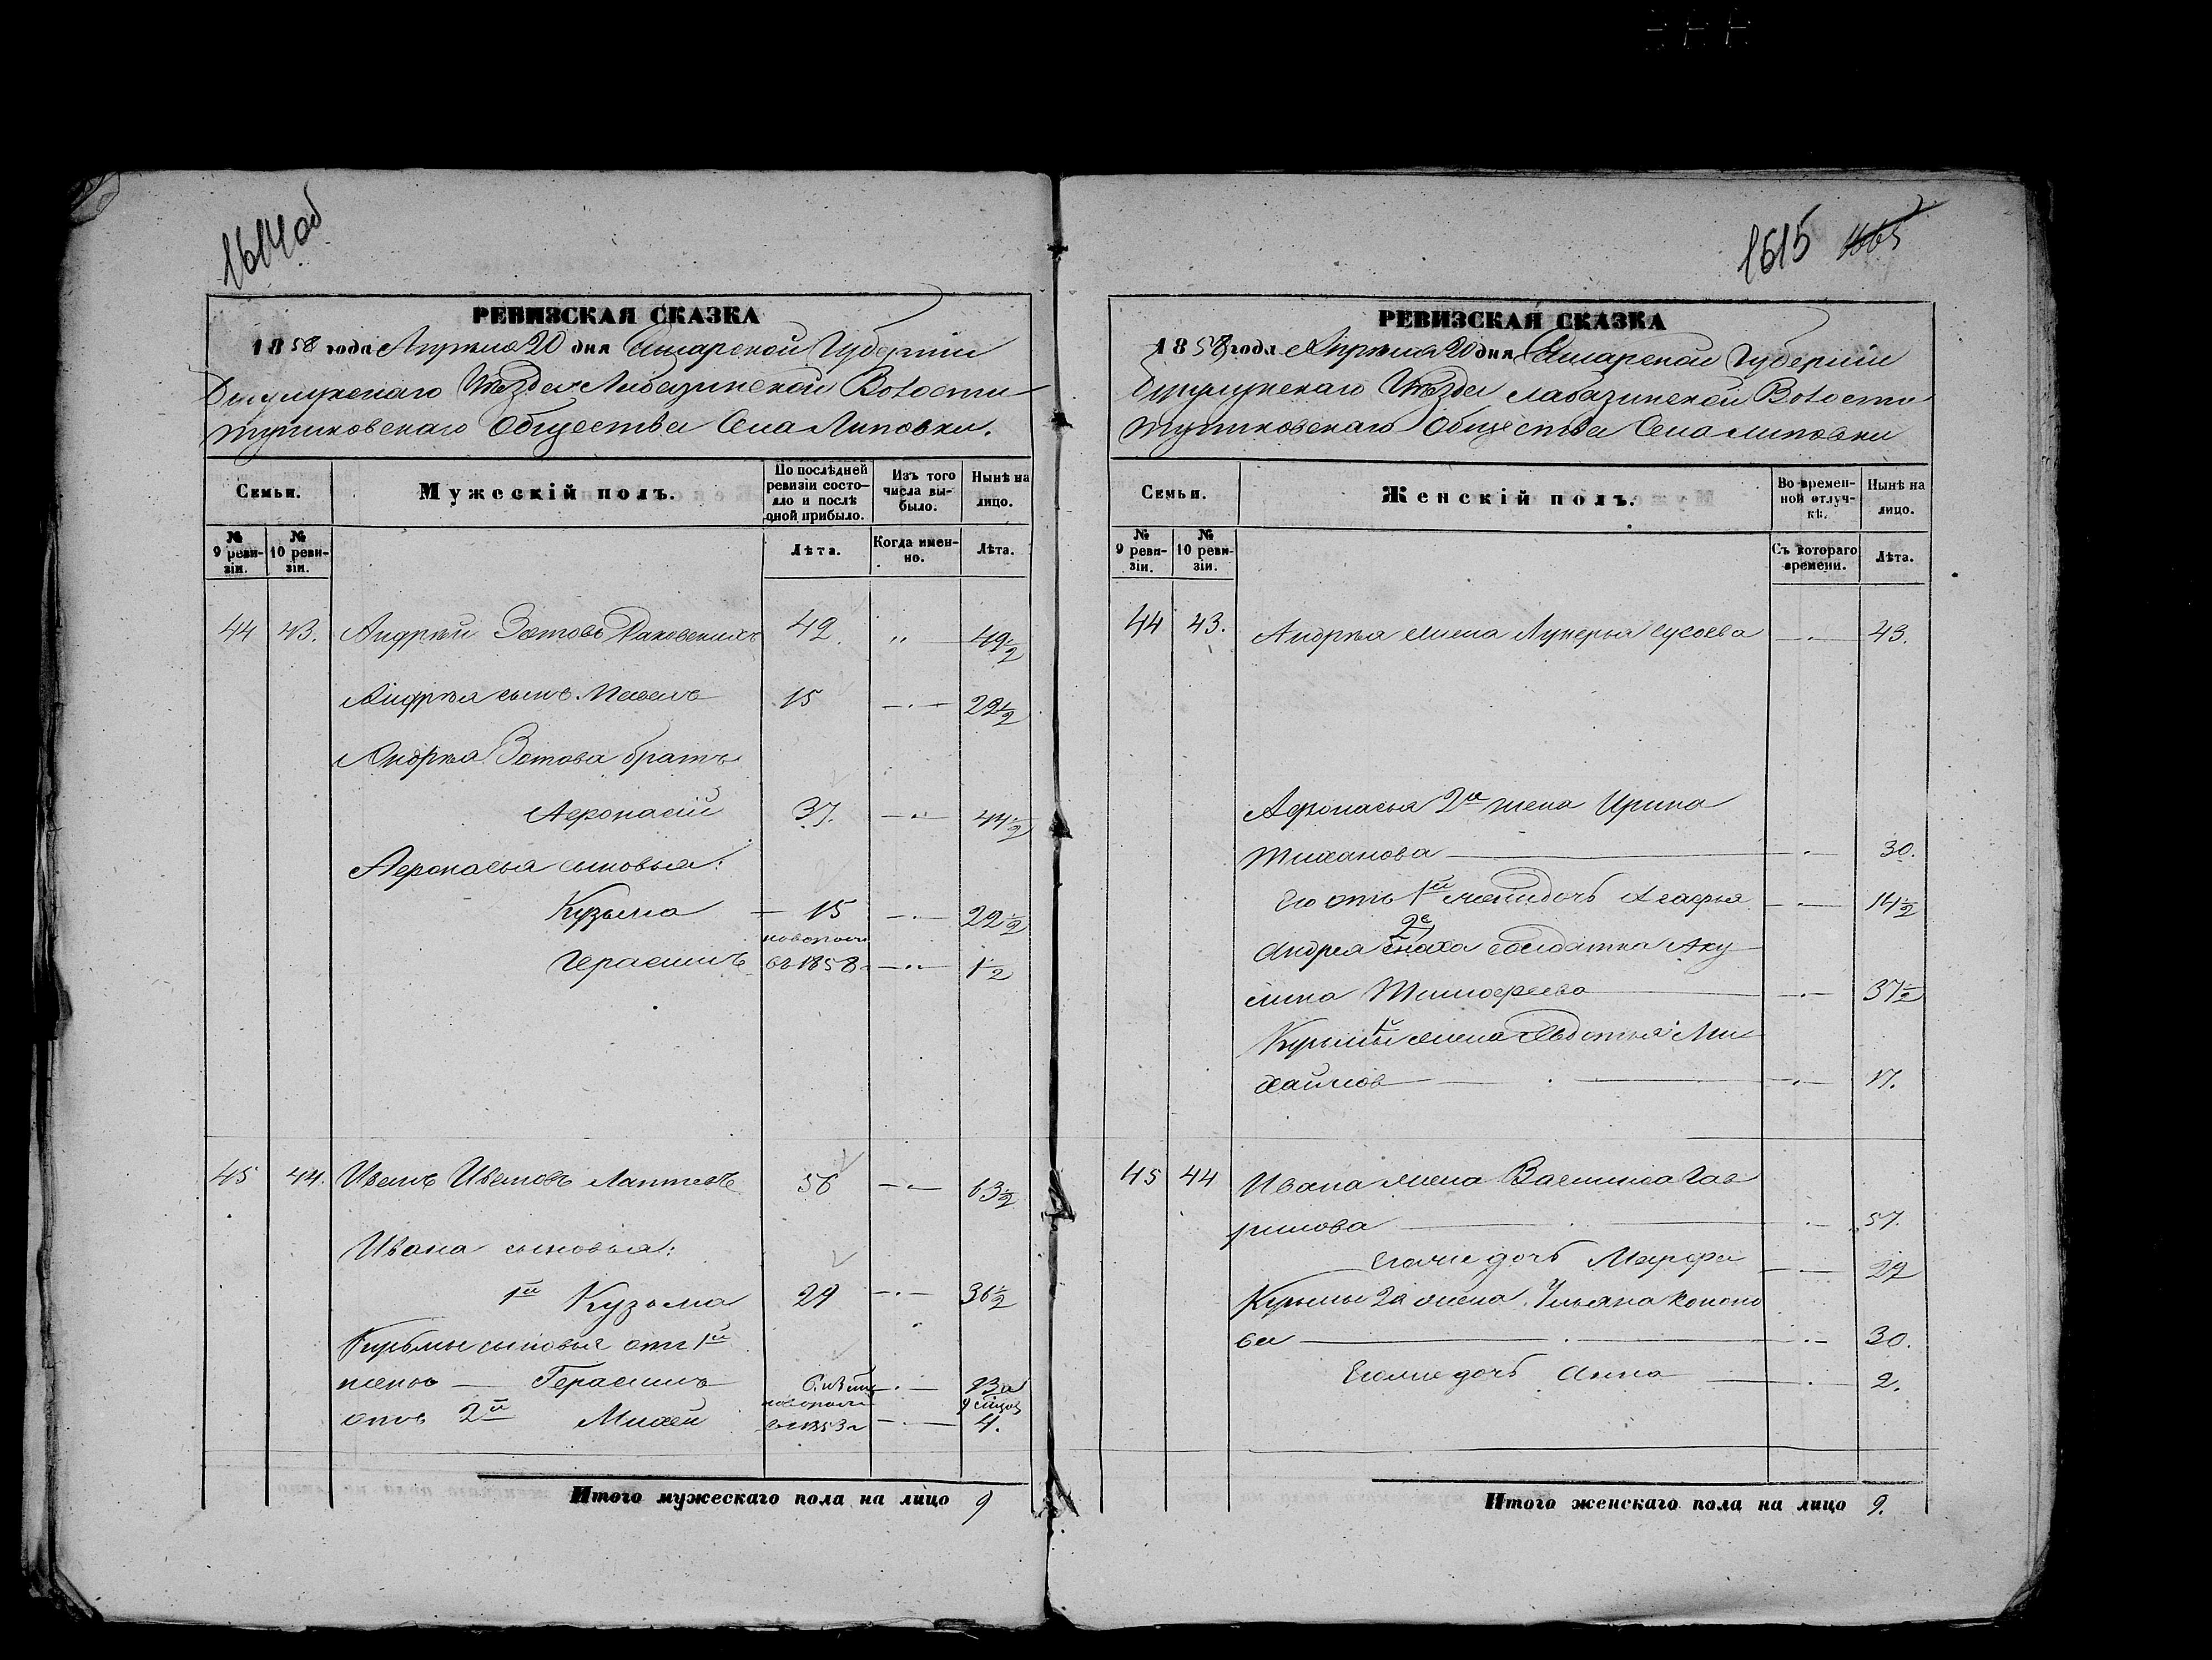 1614об
РЕВИЗСКАЯ СКАЗКА
1858 года Апреля 20 дня Самарской Губерніи
Бузулукскаго Уезда Лабазинской Волости
Общества Села Липовки.
Семьи.
Мужескій полъ.
По послѣдней ревизіи состояло и послѣ оной прибыло.
Изъ того числа выбыло.
Нынѣ на лицо.
№ 9 ревизіи.
№ 10 ревизіи.
Лѣта.
Когда именно.
Лѣта.
44 43. Андрей Зотовъ 42 " 49½
Андрея сынъ Павелъ 15 —·— 22½
Андрея Зотова братъ
Афонасій 37. —"— 44½
Афонасья сыновья:
Кузьма — 15 —·— 22½
новорож
Герасимъ въ 1858 —·— ½
45 44. Иванъ Ивановъ Лаптевъ 56 —·— 63½
Ивана сыновья:
1й Кузьма 29 —·— 36½
Кузьмы сыновья отъ 1й
жены — Герасимъ —·—
новорож
отъ 2й Михей въ 1853 —·— 4.
Итого мужескаго пола на лицо 9
1615
РЕВИЗСКАЯ СКАЗКА
1858 года Апреля 20 дня Самарской Губерніи
Бузулукскаго Уезда Лабазинской Волости
Общества Села Липовки
Семьи.
Женскій полъ.
Во временной отлучкѣ.
Нынѣ на лицо.
№ 9 ревизіи.
№ 10 ревизіи.
Съ котораго времени.
Лѣта.
44 43. Андрея жена Лукерья Сусоева —·— 43.
Афонасья 2я жена Ирина
Тиханова —·— 30.
Его отъ 1й жены дочь Агафья —·— 14½
2я
Андрея сноха солдатка Аку
лина Тимофеева —·— 37½
Кузьмы жена Евдотья Ми
хайлов —·— 17.
45 44 Ивана жена Василиса Гав
рилова —·— 57.
Его же дочь Марфа —·— 22
Кузьмы 2я жена Ульяна Конано
ва —·— 30.
Его же дочь Анна —·— 2.
Итого женскаго пола на лицо 9.